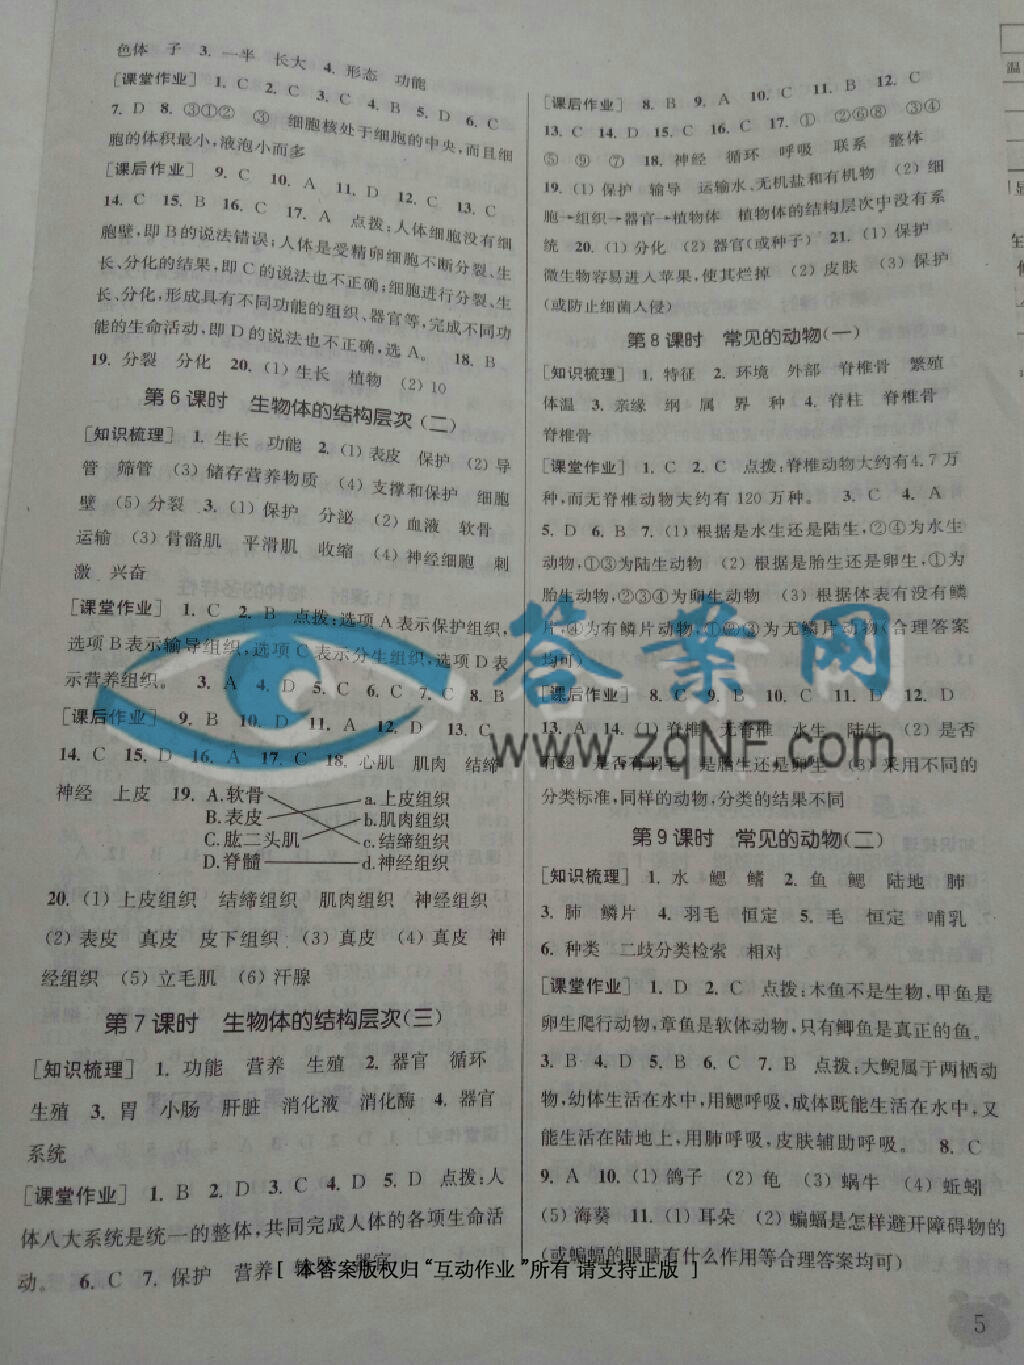 色体 子 3. 一半 长大 4. 形态 功能
[课堂作业] 1. C 2. C 3. C 4. B 5. D 6. C
7. D 8. ③①② ③ 细胞核处于细胞的中央,而且细
胞的体积最小,液泡小而多
[课后作业] 9. C 10. A 11. D 12. C 13. C
14. C 15. B 16. C 17. A 点拨:人体细胞没有细
胞壁,即B的说法错误;人体是受精卵细胞不断分裂、生
长、分化的结果,即C的说法也不正确;细胞进行分裂、生
长、分化,形成具有不同功能的组织、器官等,完成不同功
能的生命活动,即D的说法也不正确,选A。 18. B
19. 分裂 分化 20. (1) 生长 植物 (2) 10
第6课时 生物体的结构层次(二)
[知识梳理] 1. 生长 功能 2. (1) 表皮 保护 (2) 导
管 筛管 (3) 储存营养物质 (4) 支撑和保护 细胞
壁 (5) 分裂 3. (1) 保护 分泌 (2) 血液 软骨
运输 (3) 骨骼肌 平滑肌 收缩 (4) 神经细胞 刺
激 兴奋
[课堂作业] 1. C 2. B 点拨:选项A表示保护组织,
选项B表示输导组织,选项C表示分生组织,选项D表
示营养组织。 3. A 4. D 5. C 6. C 7. C 8. B
[课后作业] 9. B 10. D 11. A 12. D 13. C
14. C 15. D 16. A 17. C 18. 心肌 肌肉 结缔
神经 上皮 19. A.软骨 a.上皮组织
B.表皮 b.肌肉组织
C.肱二头肌 c.结缔组织
D.脊髓 d.神经组织
20. (1) 上皮组织 结缔组织 肌肉组织 神经组织
(2) 表皮 真皮 皮下组织 (3) 真皮 (4) 真皮 神
经组织 (5) 立毛肌 (6) 汗腺
第7课时 生物体的结构层次(三)
[知识梳理] 1. 功能 营养 生殖 2. 器官 循环
生殖 3. 胃 小肠 肝脏 消化液 消化酶 4. 器官
系统
[课堂作业] 1. B 2. D 3. C 4. D 5. D 点拨:人
体八大系统是统一的整体,共同完成人体的各项生命活
动。 6. C 7. 保护 营养 器官
[课后作业] 8. B 9. A 10. C 11. B 12. C
13. C 14. D 15. C 16. C 17. ① ②⑥⑧ ③④
⑤ ⑨ ⑦ 18. 神经 循环 呼吸 联系 整体
19. (1) 保护 输导 运输水、无机盐和有机物 (2) 细
胞→组织→器官→植物体 植物体的结构层次中没有系
统 20. (1) 分化 (2) 器官(或种子) 21. (1) 保护
微生物容易进入苹果,使其烂掉 (2) 皮肤 (3) 保护
(或防止细菌入侵)
第8课时 常见的动物(一)
[知识梳理] 1. 特征 2. 环境 外部 脊椎骨 繁殖
体温 3. 亲缘 纲 属 界 种 4. 脊柱 脊椎骨
脊椎骨
[课堂作业] 1. C 2. C 点拨:脊椎动物大约有4.7万
种,而无脊椎动物大约有120万种。 3. C 4. A
5. D 6. B 7. (1) 根据是水生还是陆生,②④为水生
动物,①③为陆生动物 (2) 根据是胎生还是卵生,①为
胎生动物,②③④为卵生动物 (3) 根据体表有没有鳞
片,④为有鳞片动物,①②③为无鳞片动物(合理答案
均可)
[课后作业] 8. C 9. B 10. C 11. D 12. D
13. A 14. (1) 脊椎 无脊椎 水生 陆生 (2) 是否
有翅 是否有羽毛 是胎生还是卵生 (3) 采用不同的
分类标准,同样的动物,分类的结果不同
第9课时 常见的动物(二)
[知识梳理] 1. 水 鳃 鳍 2. 鱼 鳃 陆地 肺
3. 肺 鳞片 4. 羽毛 恒定 5. 毛 恒定 哺乳
6. 种类 二歧分类检索 相对
[课堂作业] 1. D 2. C 点拨:木鱼不是生物,甲鱼是
卵生爬行动物,章鱼是软体动物,只有鲫鱼是真正的鱼。
3. B 4. D 5. B 6. C 7. B 点拨:大鲵属于两栖动
物,幼体生活在水中,用鳃呼吸,成体既能生活在水中,又
能生活在陆地上,用肺呼吸,皮肤辅助呼吸。 8. C
9. A 10. (1) 鸽子 (2) 龟 (3) 蜗牛 (4) 蚯蚓
(5) 海葵 11. (1) 耳朵 (2) 蝙蝠是怎样避开障碍物的
(或蝙蝠的眼睛有什么作用等合理答案均可)
答案网
www.zqNF.com
[ 本答案版权归“互动作业”所有 请支持正版 ]
5